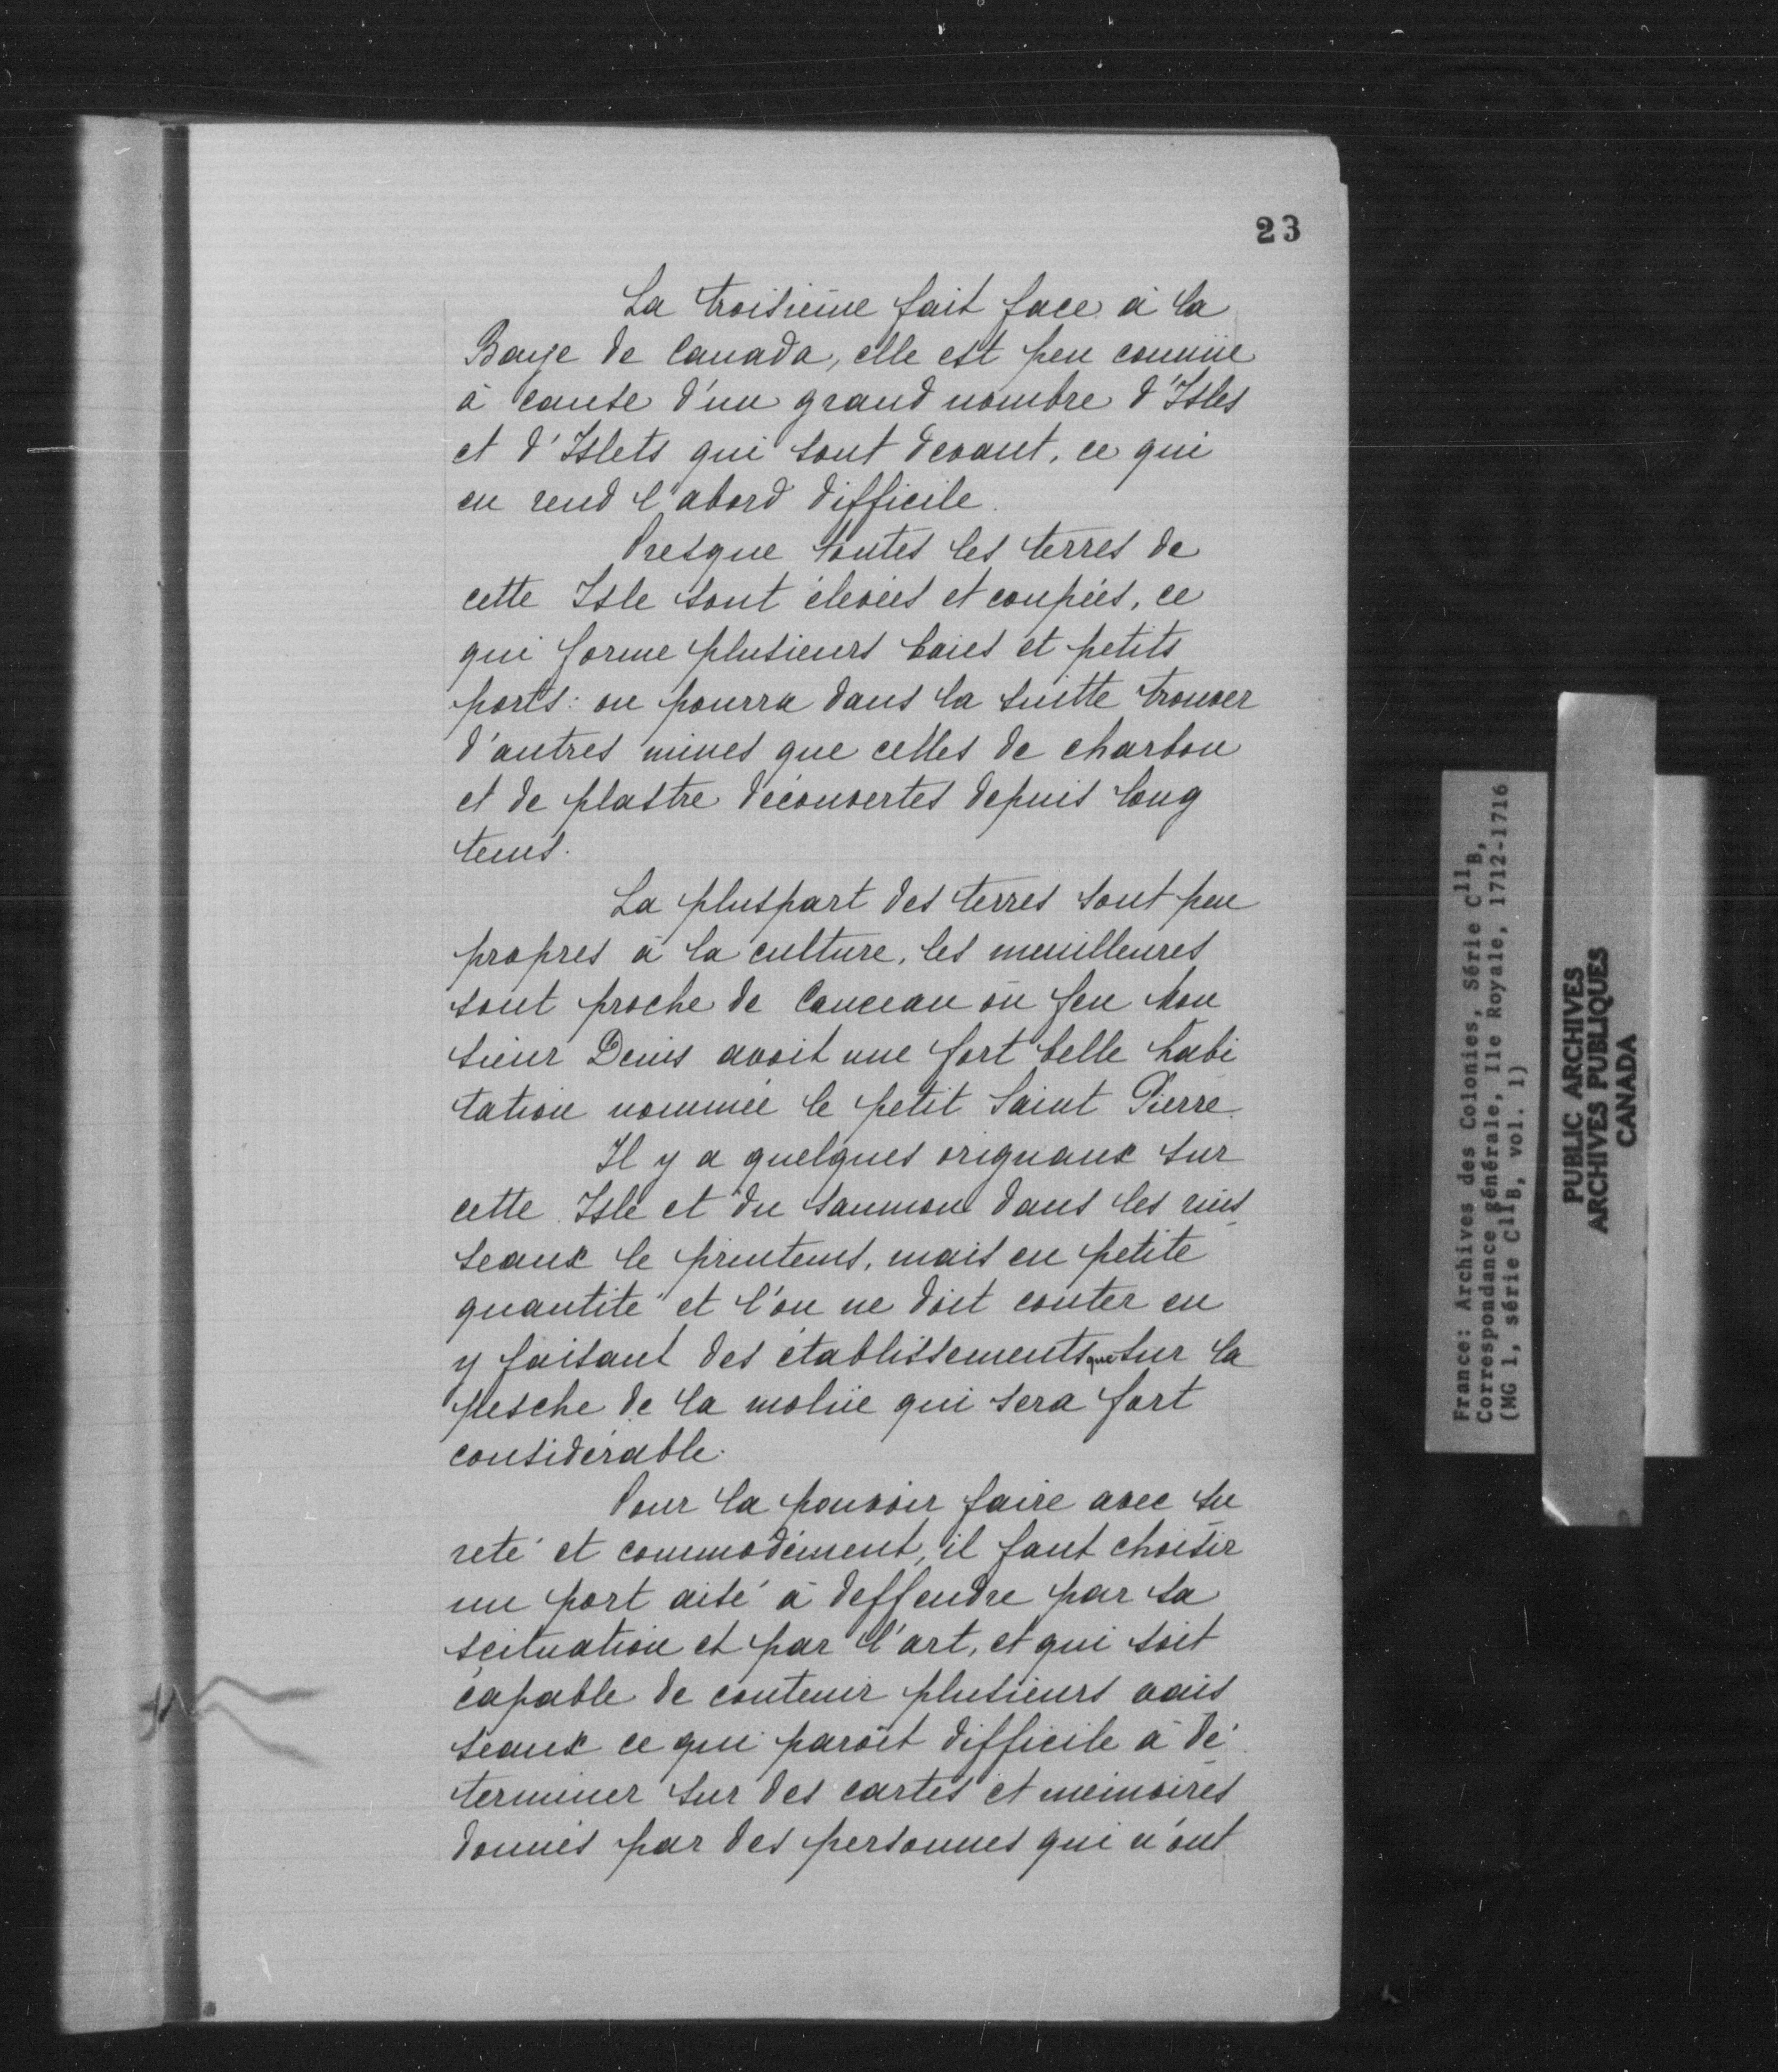 23
La troisième fait face à la
Baye de Canada, elle est peu connüe
à cause d'un grand nombre d'Isles
et d'Islets qui sont devant, ce qui
en rend l'abord difficile.
Presque toutes les terres de
cette Isle sont élevées et coupées, ce
qui forme plusieurs baies et petits
ports: on pourra dans la suitte trouver
d'autres mines que celles de charbon
et de plastre découvertes depuis long
tems.
La pluspart des terres sont peu
propres à la culture, les meuilleures
sont proche de Canceau où feu Mon
sieur Denis avoit une fort belle habi
tation nommée le petit Saint Pierre.
Il y a quelques orignaux sur
cette Isle et du saumon dans les ruis
seaux le printems, mais en petite
quantité et l'on ne doit conter en
y faisant des établissements que sur la
pesche de la molüe qui sera fort
considérable.
Pour la pouvoir faire avec su
reté et commodément, il faut choisir
un port aisé à deffendre par sa
scituation et par l'art, et qui soit
capable de contenir plusieurs vais
seaux ce qui paroît difficile à dé
terminer sur des cartes et mémoires
donnés par des personnes qui n'ont
France: Archives des Colonies, Série C11B,
Correspondance générale, Ile Royale, 1712-1716
(MG 1, série C11B, vol. 1)
PUBLIC ARCHIVES
ARCHIVES PUBLIQUES
CANADA